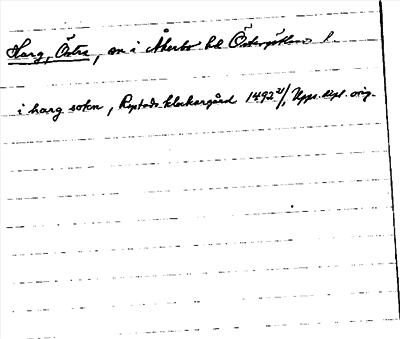 Harg, Östra, sn i Åkerbo hd Östergötlands l.
i harg sokn, Reptada klockaregård 1492 21/1, Upps. dipl. orig.